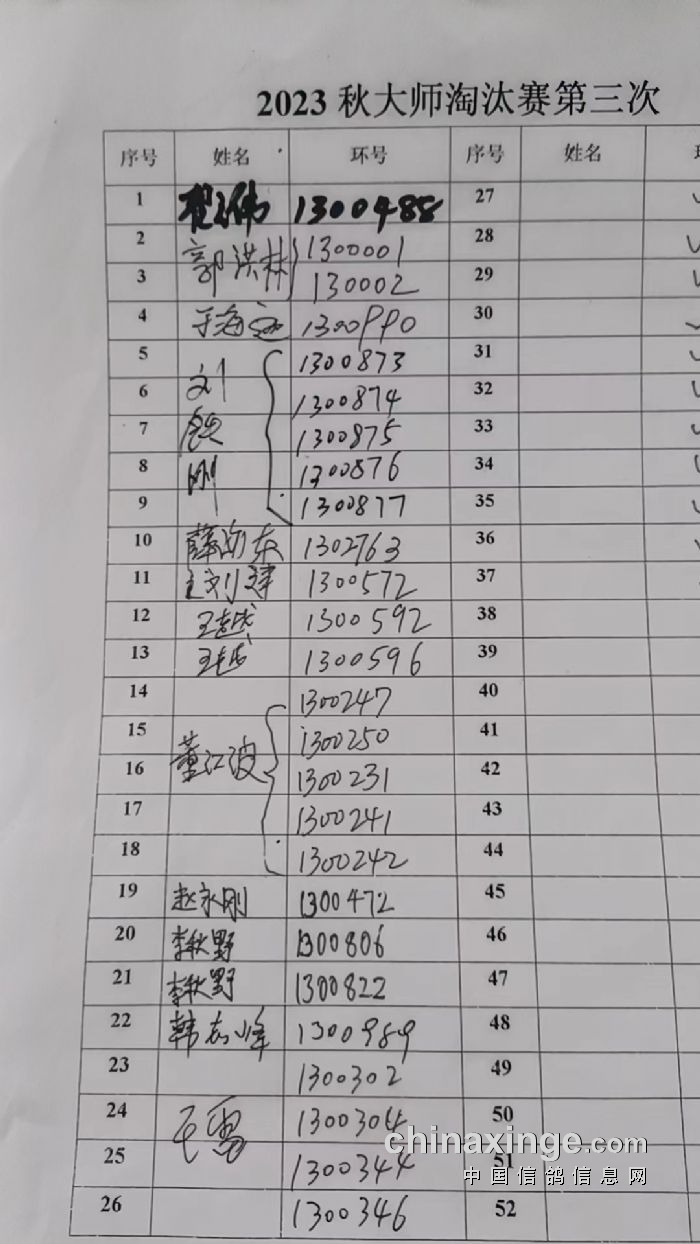 2023 秋大师淘汰赛第三次
序号 姓名 环号 序号 姓名
1 1300488 27
2 郭洪林 1300001 28
3 130002 29
4 于海 1300990 30
5 刘 1300873 31
6 1300874 32
7 1300875 33
8 刚 1300876 34
9 1300877 35
10 薛 东 1302763 36
11 1300572 37
12 王越 1300592 38
13 王越 1300596 39
14 1300247 40
15 董江波 1300250 41
16 1300231 42
17 1300241 43
18 1300242 44
19 赵永刚 1300472 45
20 李秋野 1300806 46
21 李秋野 1300822 47
22 韩志峰 1300989 48
23 1300302 49
24 1300304 50
25 1300344 51
26 1300346 52
chinaxinge.com
中国信鸽信息网